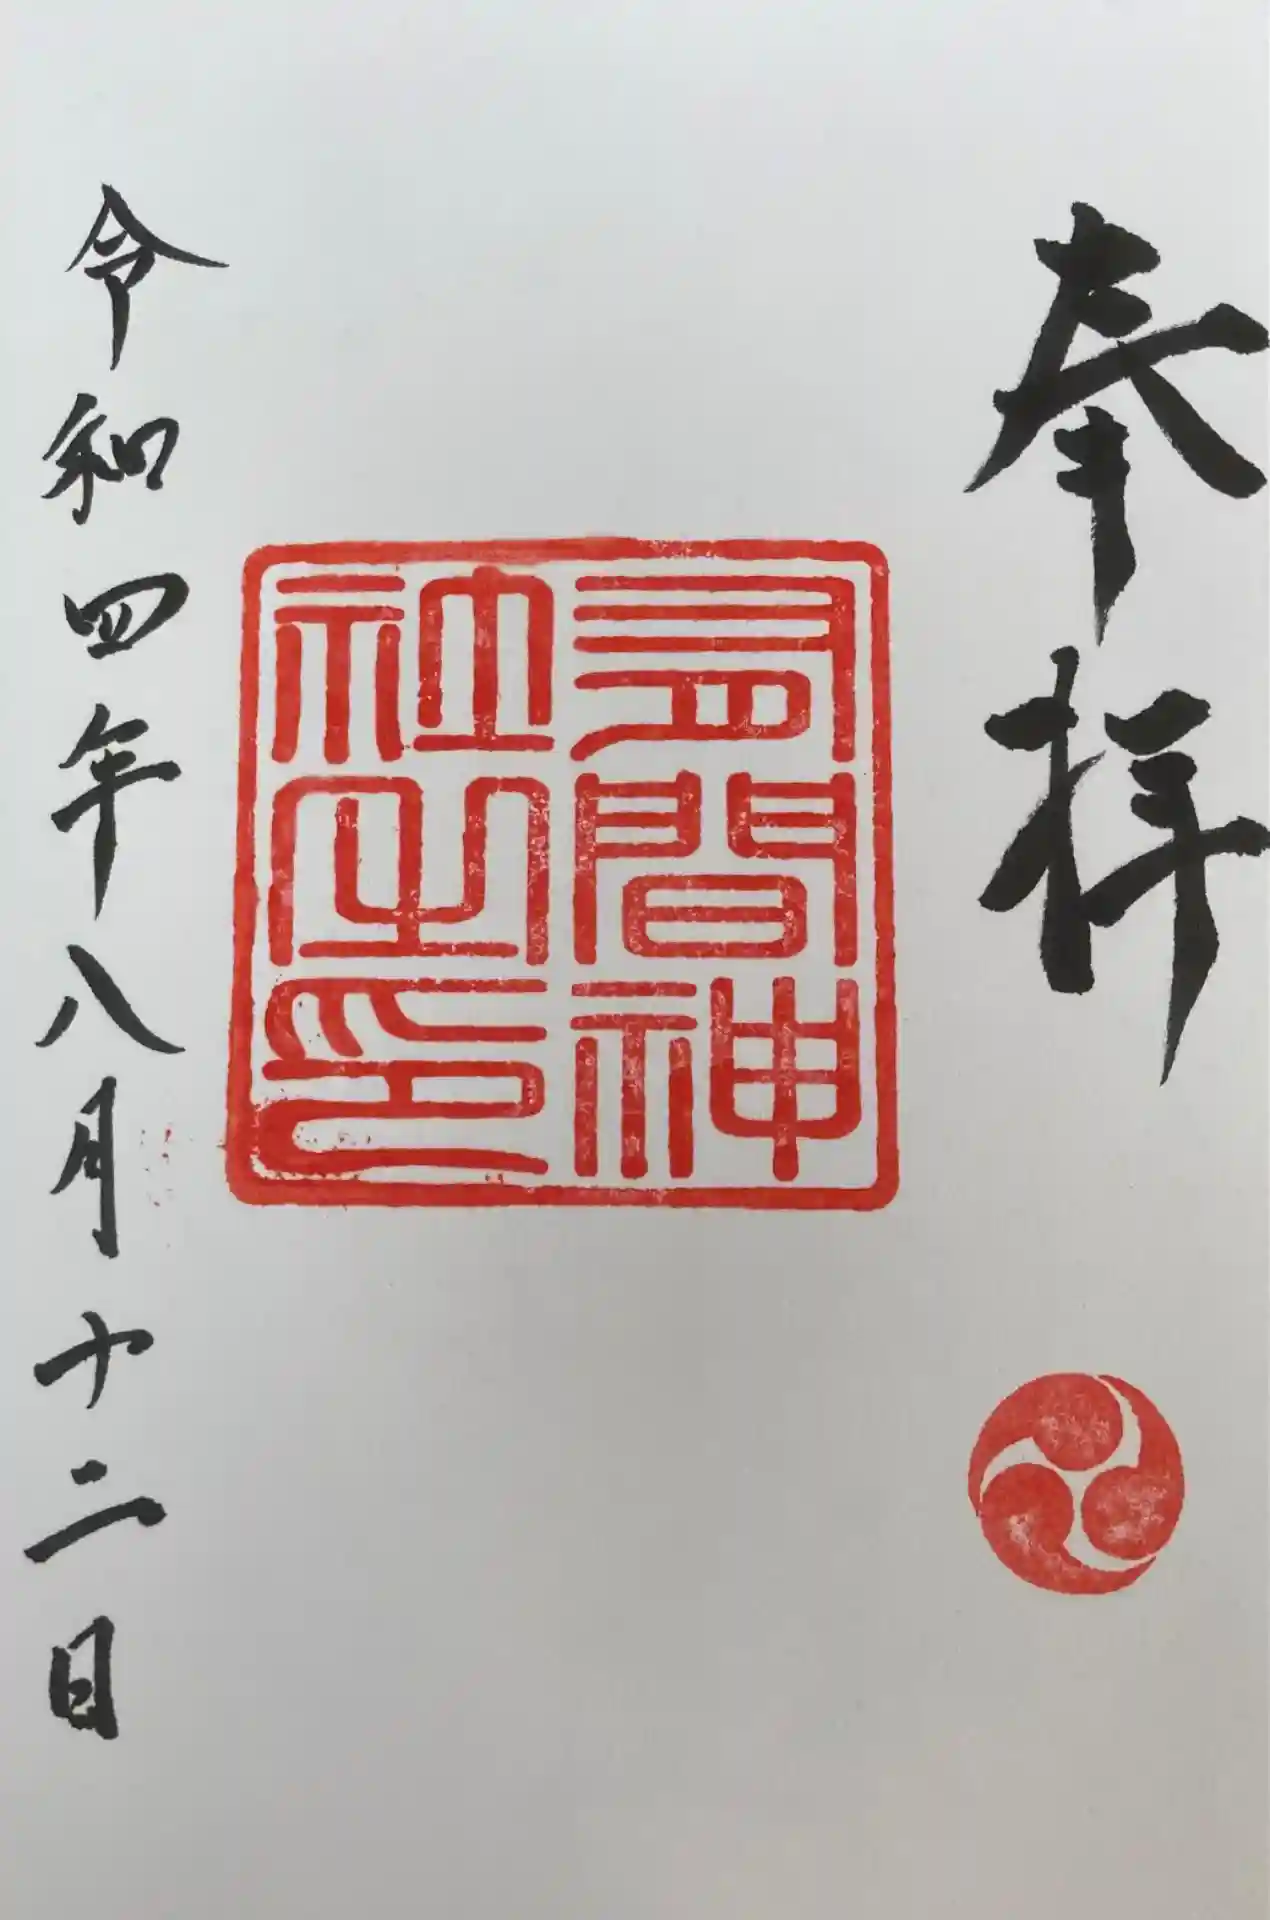 奉拝
有間神
社之印
令和四年八月十二日